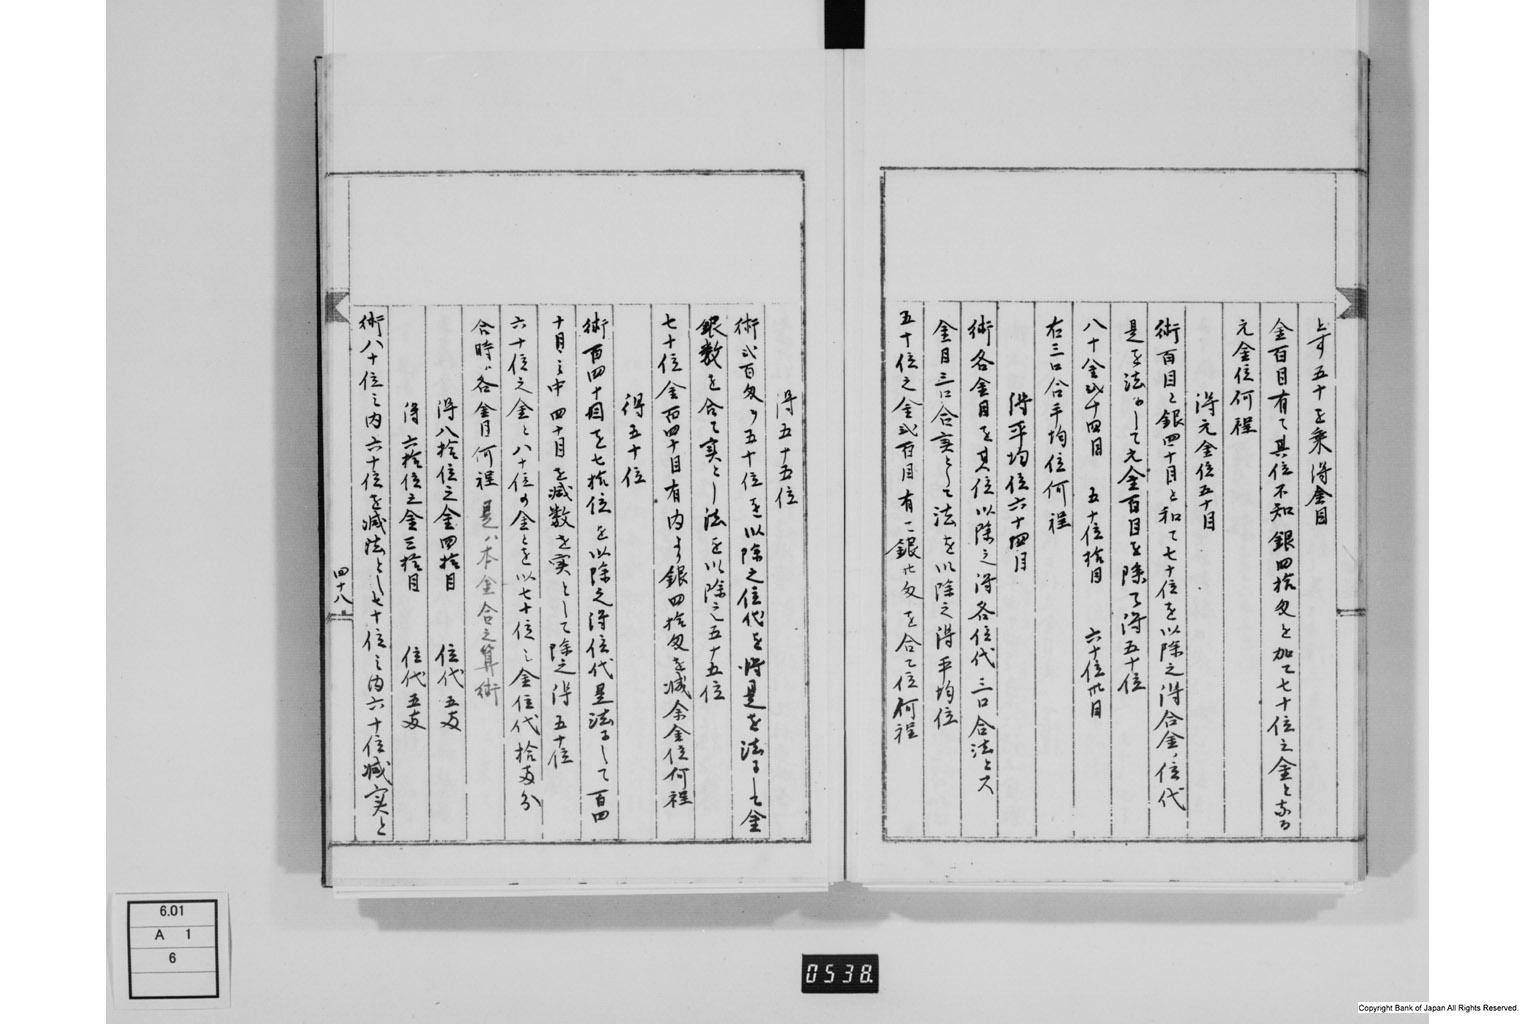 上す五十を乗得金目
金百目有て其位不知銀四拾匁を加て七十位之金と成る
元金位何程
得元金位五十目
術百目と銀四十目と和て七十位を以除之得合金位代
是を法にして元金百目を除て得五十位
八十金弐十四目 五十位拾目 六十位卅目
右三口合平均位何程
得平均位六十四目
術各金目を其位以除之得各位代三口合法とス
金目三口合実として法を以除之得平均位
五十位之金弐百目有二銀廿匁を合て位何程
得五十五位
術弐百匁ゟ五十位を以除之位代を得是を法にして金
銀数を合て実とし法を以除之五十五位
七十位金百四十目有内より銀四拾匁を減余金位何程
得五十位
術百四十目を七拾位を以除之得位代是法にして百四
十目之中四十目を減数を実として除之得五十位
六十位之金と八十位の金とを以七十位之金位代拾匁分
合時ハ各金目何程是ハ本金合之算術
得八拾位之金四拾目 位代五匁
得六拾位之金三拾目 位代五匁
術八十位之内六十位を減法とし七十位之内六十位減実と
四十八
6.01
A 1
6
0538.
Copyright Bank of Japan All Rights Reserved.